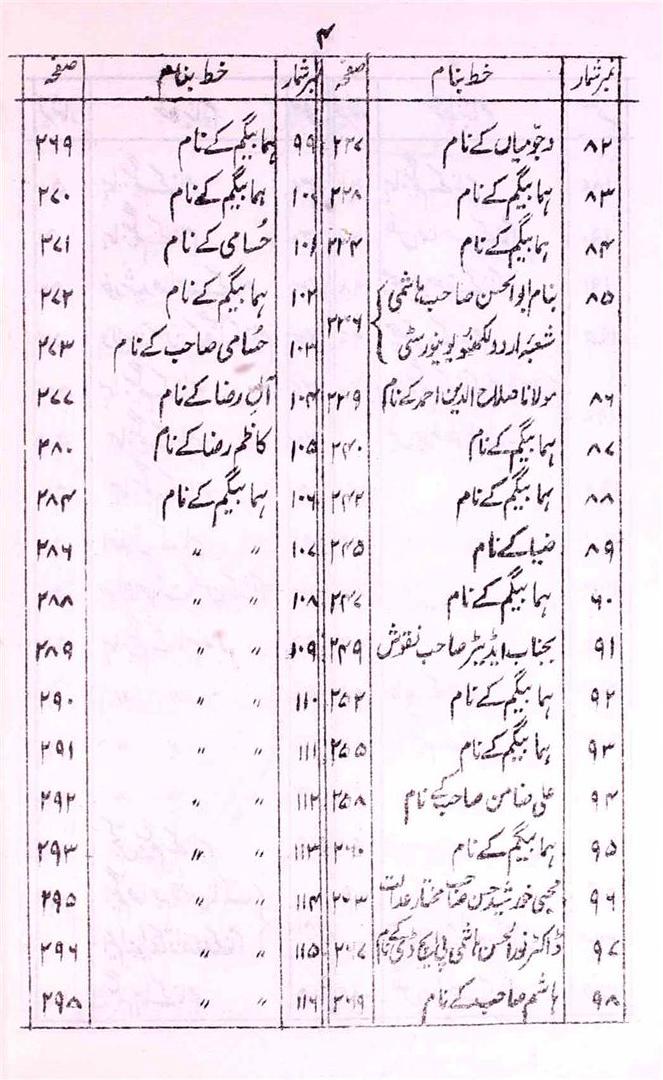 ۴
نمبر شمار خط بنام صفحہ
۸۲ دجّو میاں کے نام ۲۲۷
۸۳ ہما بیگم کے نام ۲۲۸
۸۴ ہما بیگم کے نام ۲۳۴
۸۵ بنام ابوالحسن صاحب ہاشمی
شعبۂ اردو لکھنؤ یونیورسٹی ۲۳۶
۸۶ مولانا صلاح الدین احمد کے نام ۲۳۹
۸۷ ہما بیگم کے نام ۲۴۰
۸۸ ہما بیگم کے نام ۲۴۲
۸۹ ضیا کے نام ۲۴۵
۹۰ ہما بیگم کے نام ۲۴۷
۹۱ بجناب ایڈیٹر صاحب نقوش ۲۴۹
۹۲ ہما بیگم کے نام ۲۵۳
۹۳ ہما بیگم کے نام ۲۵۵
۹۴ علی ضامن صاحب کے نام ۲۵۸
۹۵ ہما بیگم کے نام ۲۶۰
۹۶ محبی خورشید حسن صاحب مختار عدالت ۲۶۳
۹۷ ڈاکٹر نورالحسن ہاشمی پی ایچ ڈی کے نام ۲۶۷
۹۸ ہاشم صاحب کے نام ۲۶۹
نمبر شمار خط بنام صفحہ
۹۹ ہما بیگم کے نام ۲۶۹
۱۰۰ ہما بیگم کے نام ۲۷۰
۱۰۱ حُسامی کے نام ۲۷۱
۱۰۲ ہما بیگم کے نام ۲۷۲
۱۰۳ حُسامی صاحب کے نام ۲۷۳
۱۰۴ آلِ رضا کے نام ۲۷۷
۱۰۵ کاظم رضا کے نام ۲۸۰
۱۰۶ ہما بیگم کے نام ۲۸۴
۱۰۷ " " ۲۸۶
۱۰۸ " " ۲۸۸
۱۰۹ " " ۲۸۹
۱۱۰ " " ۲۹۰
۱۱۱ " " ۲۹۱
۱۱۲ " " ۲۹۲
۱۱۳ " " ۲۹۳
۱۱۴ " " ۲۹۵
۱۱۵ " " ۲۹۶
۱۱۶ " " ۲۹۸